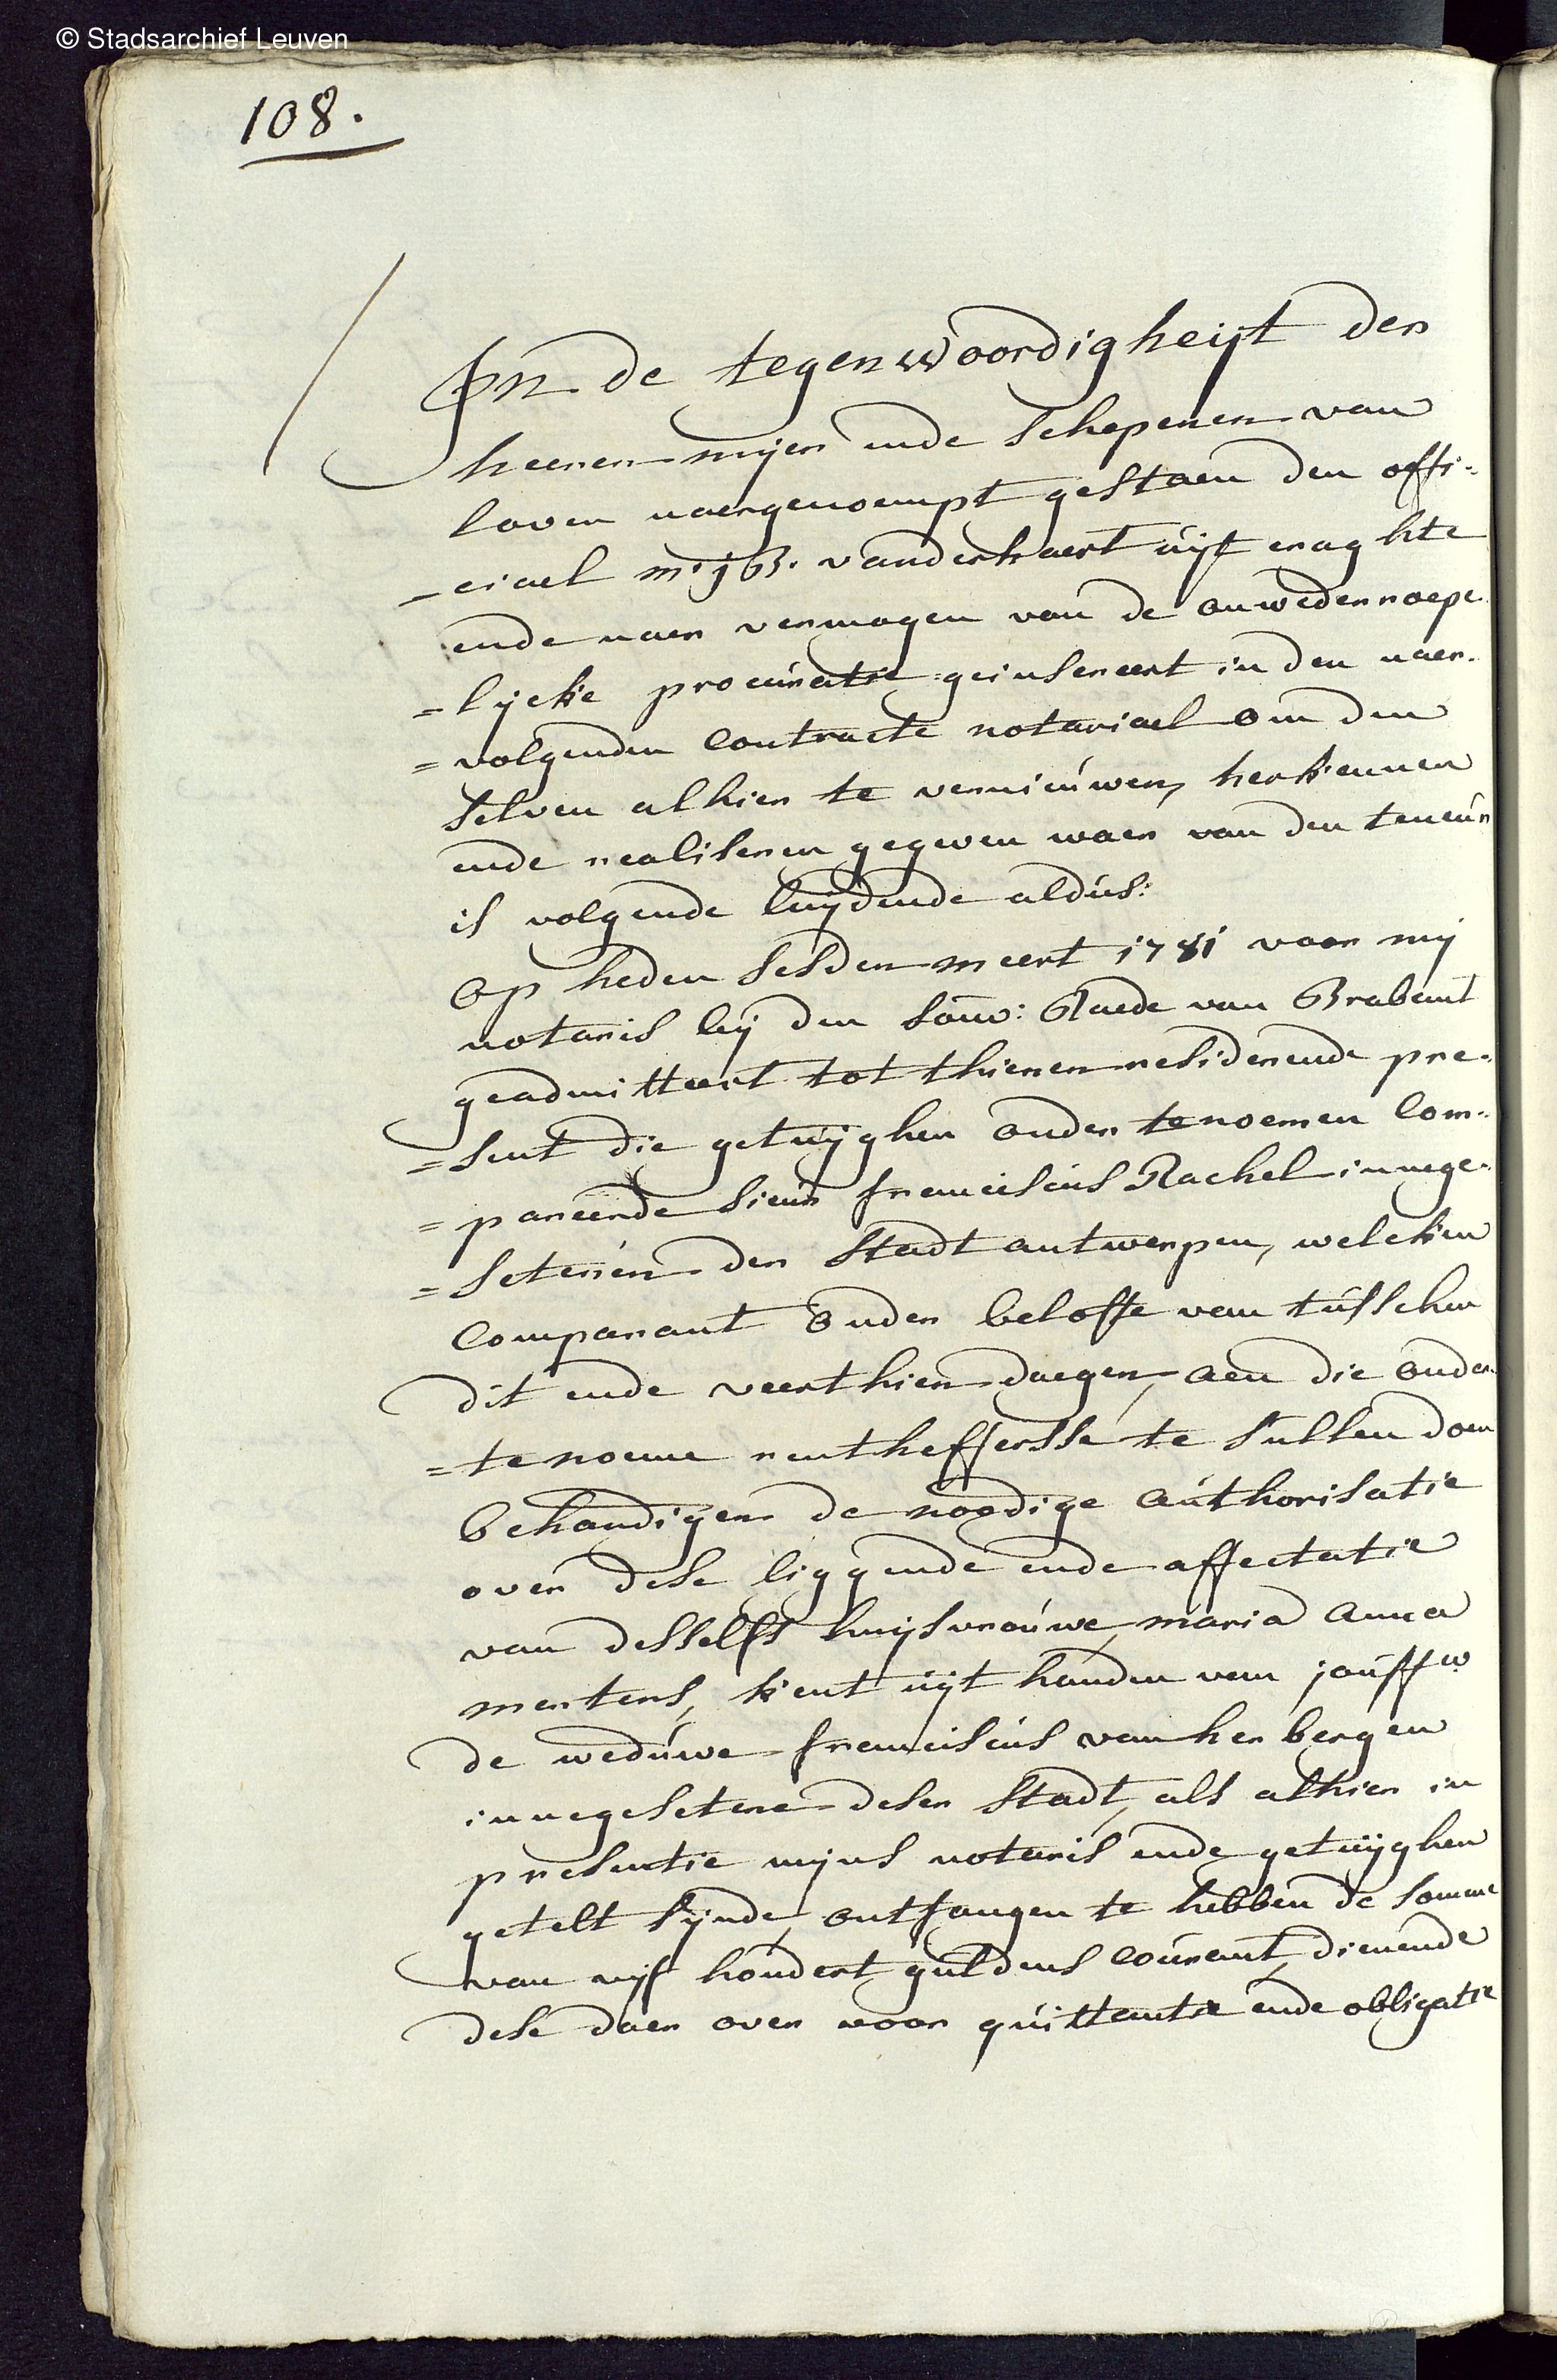 © Stadsarchief Leuven
108.
In de tegenwoordigheijt der
heeren meijer ende schepenen van
loven naergenoempt gestaen den offi-
-ciael mr. j B. vanderhaert uijt craghte
ende naer vermogen van de onwederroepe
=lijcke procuratie geinsereert in den naer-
=volgenden Contracte notariael om den
selven alhier te vernieúwen, herkennen
ende realiseren gegeven waer van den teneúr
is volgende luijdende aldús:
Op heden sesden meert 1781 voor mij
notaris bij den souv: Raede van Brabant
geadmitteert tot thienen residerende pre-
=sent die getuijghen onder tenoemen Com-
=pareerde sieur franciscús Rachel innege-
=seten der stadt antwerpen, welcken
Comparant onder beloffte van tússchen
dit ende veerthien daegen, aen die onder
=tenoeme rentheffersse te sullen doen
behandigen de noodige aúthorisatie
over dese liggende ende affectatie
van desselfs huijsvroúwe, maria anna
mertens, kent uijt handen van joúffw
de wedúwe franciscús van herbergen
innegesetene deser stadt, als alhier in
presentie mijns notaris ende getuijghen
getelt sijnde, ontfangen te hebben de somme
van vijf hondert guldens coúrant, dienende
dese daer over voor qúittantie ende obligatie